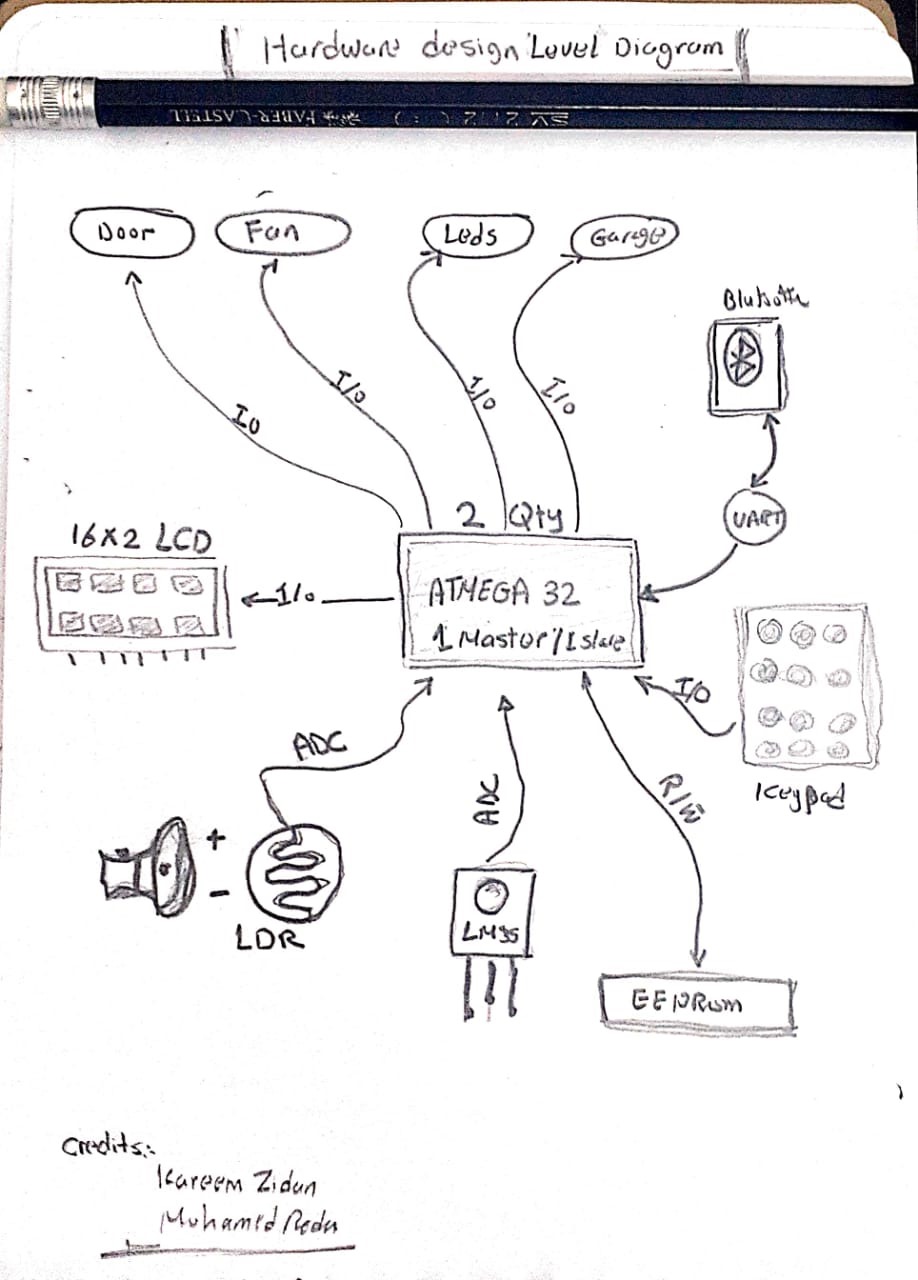 Hardware design Level Diagram
FABER-CASTELL
Door
Fan
Leds
Garage
Blutooth
IO
I/O
I/O
I/O
2 Qty
UART
16X2 LCD
I/O
ATMEGA 32
1 Master/1 slave
I/O
Keypad
ADC
ADC
R/W
+
-
LDR
LM35
EEPROM
Credits:
Kareem Zidan
Mohamed Reda